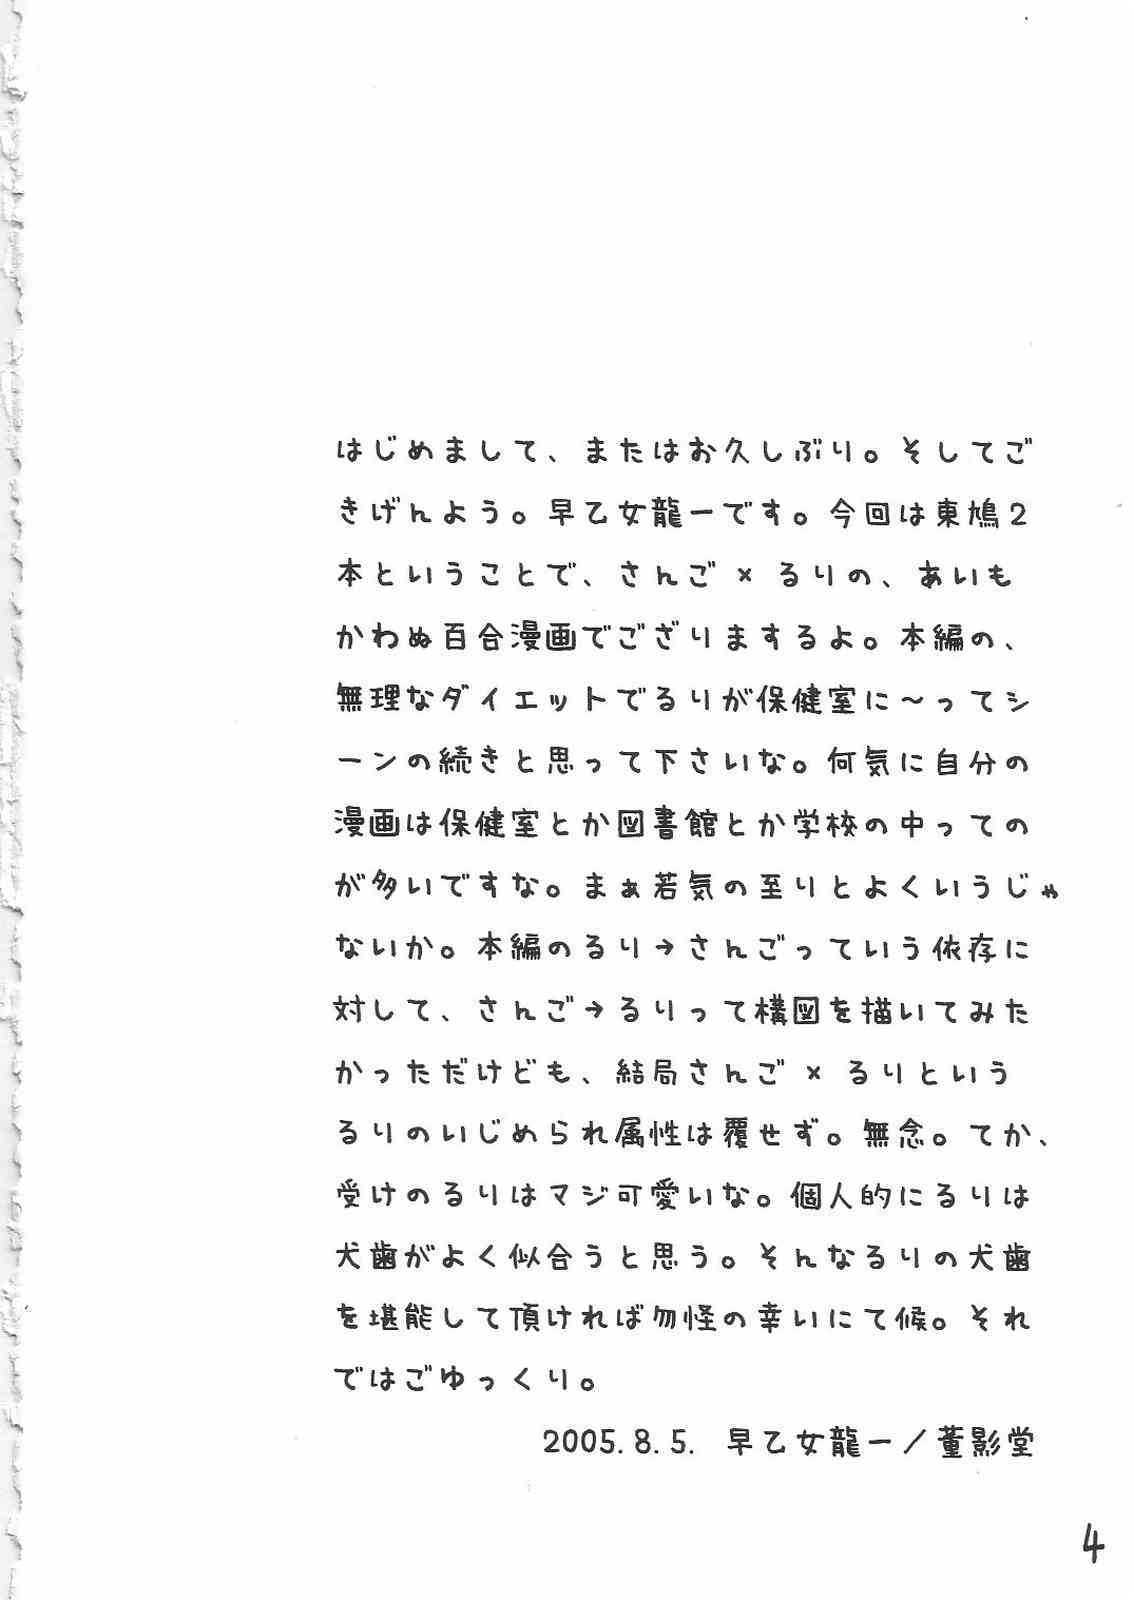 はじめまして、またはお久しぶり。そしてご
きげんよう。早乙女龍一です。今回は東鳩２
本ということで、さんご×るりの、あいも
かわぬ百合漫画でござりまするよ。本編の、
無理なダイエットでるりが保健室に～ってシ
ーンの続きと思って下さいな。何気に自分の
漫画は保健室とか図書館とか学校の中っての
が多いですな。まぁ若気の至りとよくいうじゃ
ないか。本編のるり→さんごっていう依存に
対して、さんご→るりって構図を描いてみた
かっただけども、結局さんご×るりという
るりのいじめられ属性は覆せず。無念。てか、
受けのるりはマジ可愛いな。個人的にるりは
犬歯がよく似合うと思う。そんなるりの犬歯
を堪能して頂ければ勿怪の幸いにて候。それ
ではごゆっくり。
2005.8.5. 早乙女龍一／菫影堂
4